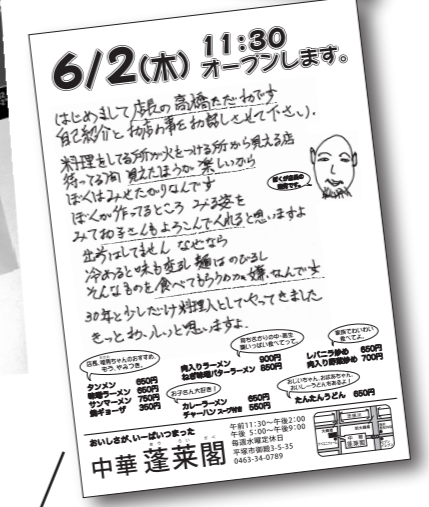 6/2(木) 11:30
オープンします。
はじめまして店長の高橋ただおです
自己紹介とお店の事をお話しさせて下さい。
料理をしてる所が火をつける所から見える店
待ってる間 見えたほうが楽しいから
ぼくはみせたがりなんです
ぼくが作ってるところ みる姿を
みてお子さんもよろこんでくれると思いますよ
出前はしてません なぜなら
冷めると味も変化 麺はのびるし
そんなものを食べてもらうのがイヤ、嫌なんです
30年と少しだけ料理人としてやってきました
きっとおいしいと思いますよ。
ぼくが店長の
似顔です。
店長、瑠南ちゃんのおすすめ。
もう、やみつき。
タンメン 650円
味噌ラーメン 650円
サンマーメン 750円
焼ギョーザ 350円
育ちざかりの中・高生
腹いっぱい食べてって。
肉入りラーメン 900円
ねぎ味噌バターラーメン 850円
お子さん大好き!
カレーラーメン 650円
チャーハン スープ付き 550円
家族でわいわい
食べてよ。
レバニラ炒め 650円
肉入り野菜炒め 700円
おじいちゃん、おばあちゃん、
おいしーうどんもあるよ!
たんたんうどん 650円
おいしさが、いーぱいつまった
中華 蓬莱閣
午前11:30〜午後2:00
午後 5:00〜午後9:00
毎週水曜定休日
平塚市御殿3-5-35
0463-34-0789
中華
蓬莱閣